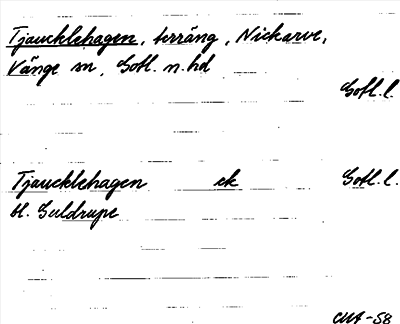 Tjaucklehagen, terräng, Nickarve,
Vänge sn, Gotl. n. hd
Gotl. l.
Tjaucklehagen ek Gotl. l.
bl. Guldrupe
CMA-58